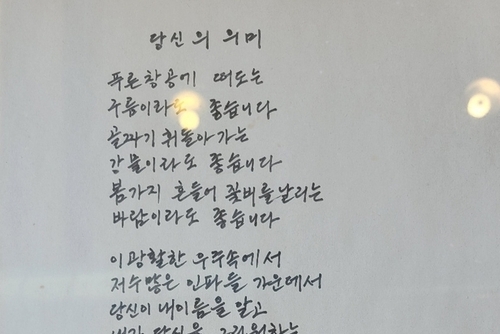 당신의 의미
푸른창공에 떠도는
구름이라도 좋습니다
골짜기 휘돌아가는
강물이라도 좋습니다
봄가지 흔들어 꽃비를날리는
바람이라도 좋습니다
이광활한 우주속에서
저수많은 인파들 가운데서
당신이 내이름을 알고
내가 당신을